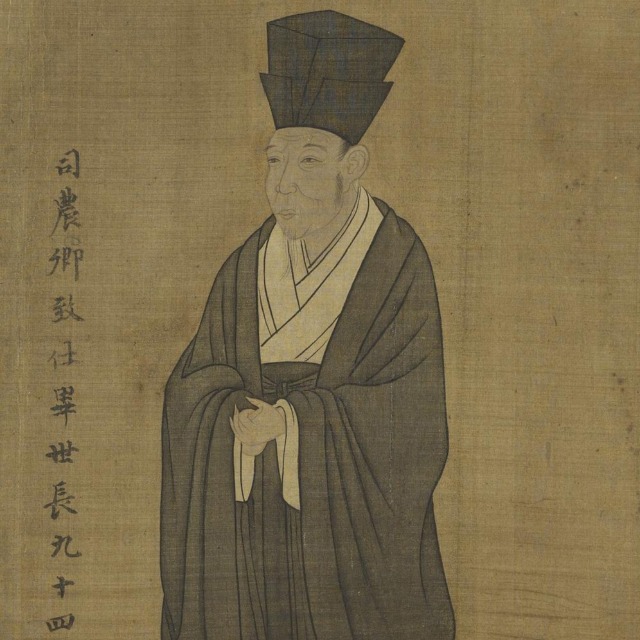 司農卿致仕畢世長九十四